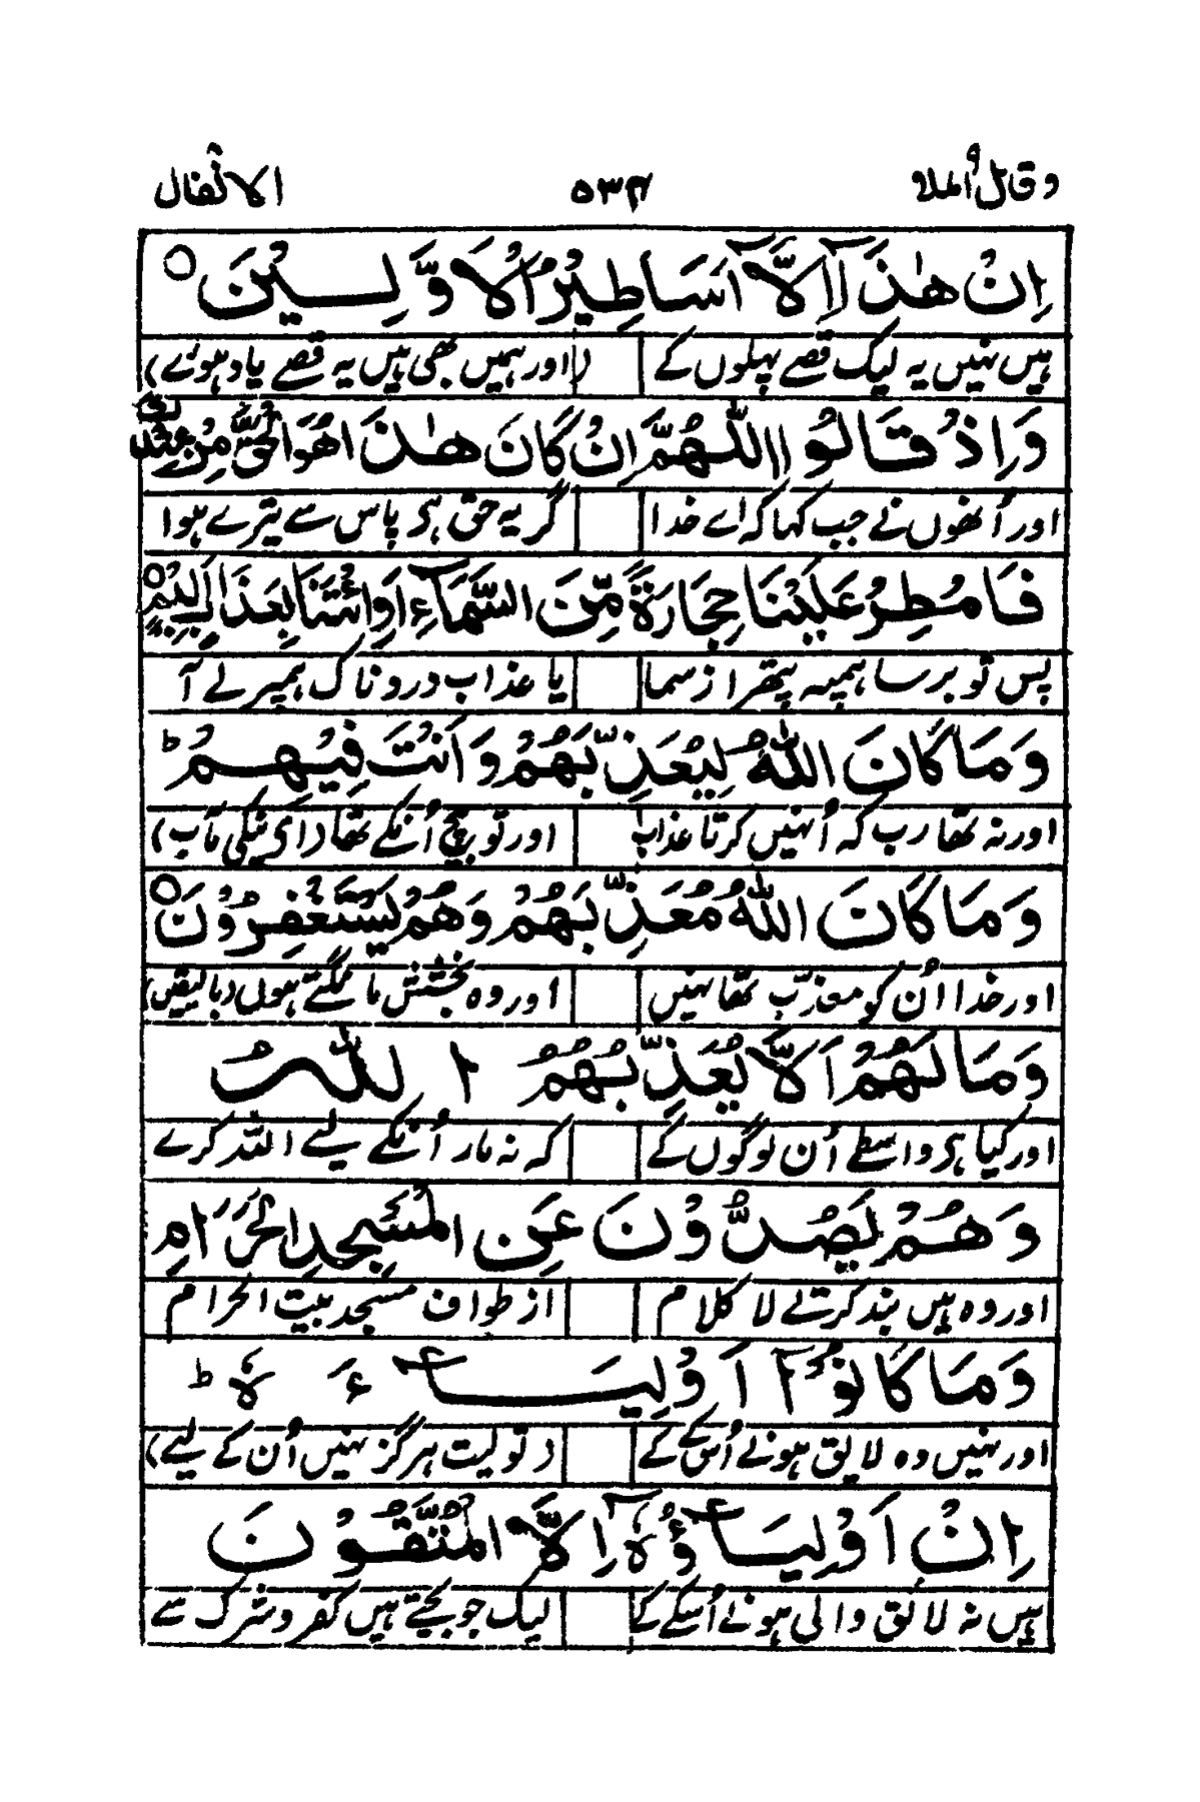 وقال الملا ۹ ۵۳۴ الانفال ۸
اِنْ هٰذَآ اِلَّآ اَسَاطِيْرُ الْاَوَّلِيْنَ ○
ہیں نہیں یہ لیک قصے پہلوں کے (اور ہمیں بھی ہیں یہ قصے یاد ہوئے)
وَاِذْ قَالُوا اللّٰهُمَّ اِنْ كَانَ هٰذَا هُوَ الْحَقَّ مِنْ عِنْدِكَ
اور اُنھوں نے جب کہا کہ اے خدا گر یہ حق ہی پاس سے تیرے ہوا
فَاَمْطِرْ عَلَيْنَا حِجَارَةً مِّنَ السَّمَآءِ اَوِائْتِنَا بِعَذَابٍ اَلِيْمٍ ○
پس تو برسا ہمپہ پتھر از سما یا عذاب دردناک ہمپر لے آ
وَمَا كَانَ اللّٰهُ لِيُعَذِّبَهُمْ وَاَنْتَ فِيْهِمْ ط
اور نہ تھا رب کہ اُنہیں کرتا عذاب اور تو بیچ اُنکے تھا (ای نیکی مآب)
وَمَا كَانَ اللّٰهُ مُعَذِّبَهُمْ وَهُمْ يَسْتَغْفِرُوْنَ ○
اور خدا اُن کو معذّب تھا نہیں اور وہ بخشش مانگتے ہوں (بالیقیں)
وَمَا لَهُمْ اَلَّا يُعَذِّبَهُمُ اللّٰهُ
اور کیا ہی واسطے اُن لوگوں کے کہ نہ مار اُنکے لیے اللہ کرے
وَهُمْ يَصُدُّوْنَ عَنِ الْمَسْجِدِ الْحَرَامِ
اور وہ ہیں بند کرتے لا کلام از طواف مسجد بیت الحرام
وَمَا كَانُوْٓا اَوْلِيَآءَهٗ ط
اور نہیں وہ لایق ہونے اُس کے کے (تولیت ہرگز نہیں اُن کے لیے)
اِنْ اَوْلِيَآؤُهٗٓ اِلَّا الْمُتَّقُوْنَ
ہیں نہ لائق والی ہونے اُسکے کے لیک جو بچتے ہیں کفر و شرک سے